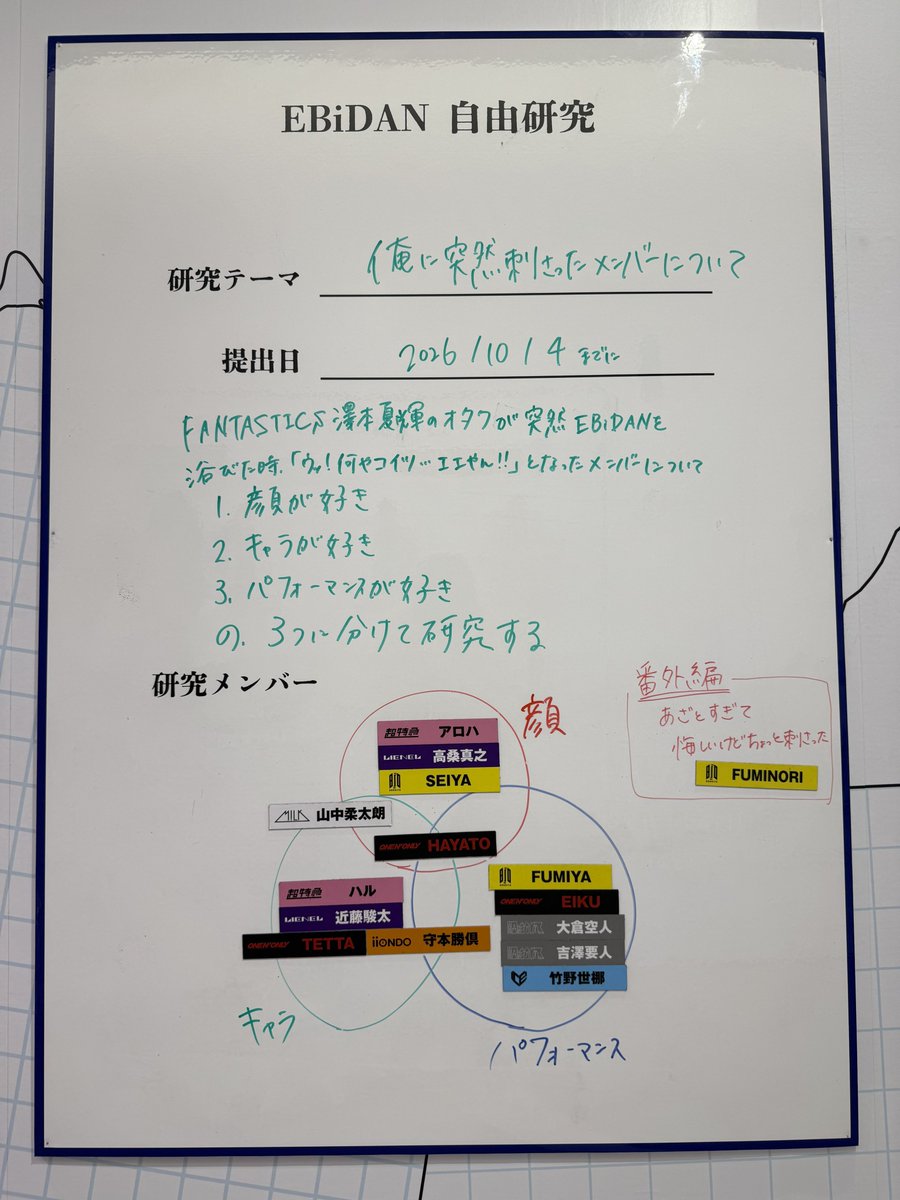 EBiDAN 自由研究
研究テーマ 俺に突然刺さったメンバーについて
提出日 2026/10/4 までに
FANTASTICS 澤本夏輝のオタクが突然EBiDANを
浴びた時、「ウッ!何やコイツ…エエやん!!」となったメンバーについて
1. 顔が好き
2. キャラが好き
3. パフォーマンスが好き
の、3つに分けて研究する
研究メンバー
番外編
あざとすぎて
悔しいけどちょっと刺さった
FUMINORI
顔
超特急 アロハ
高桑真之
SEIYA
M!LK 山中柔太朗
ONE N' ONLY HAYATO
超特急 ハル
近藤駿太
ONE N' ONLY TETTA
iiONDO 守本勝倶
FUMIYA
ONE N' ONLY EIKU
大倉空人
吉澤要人
竹野世梛
キャラ
パフォーマンス